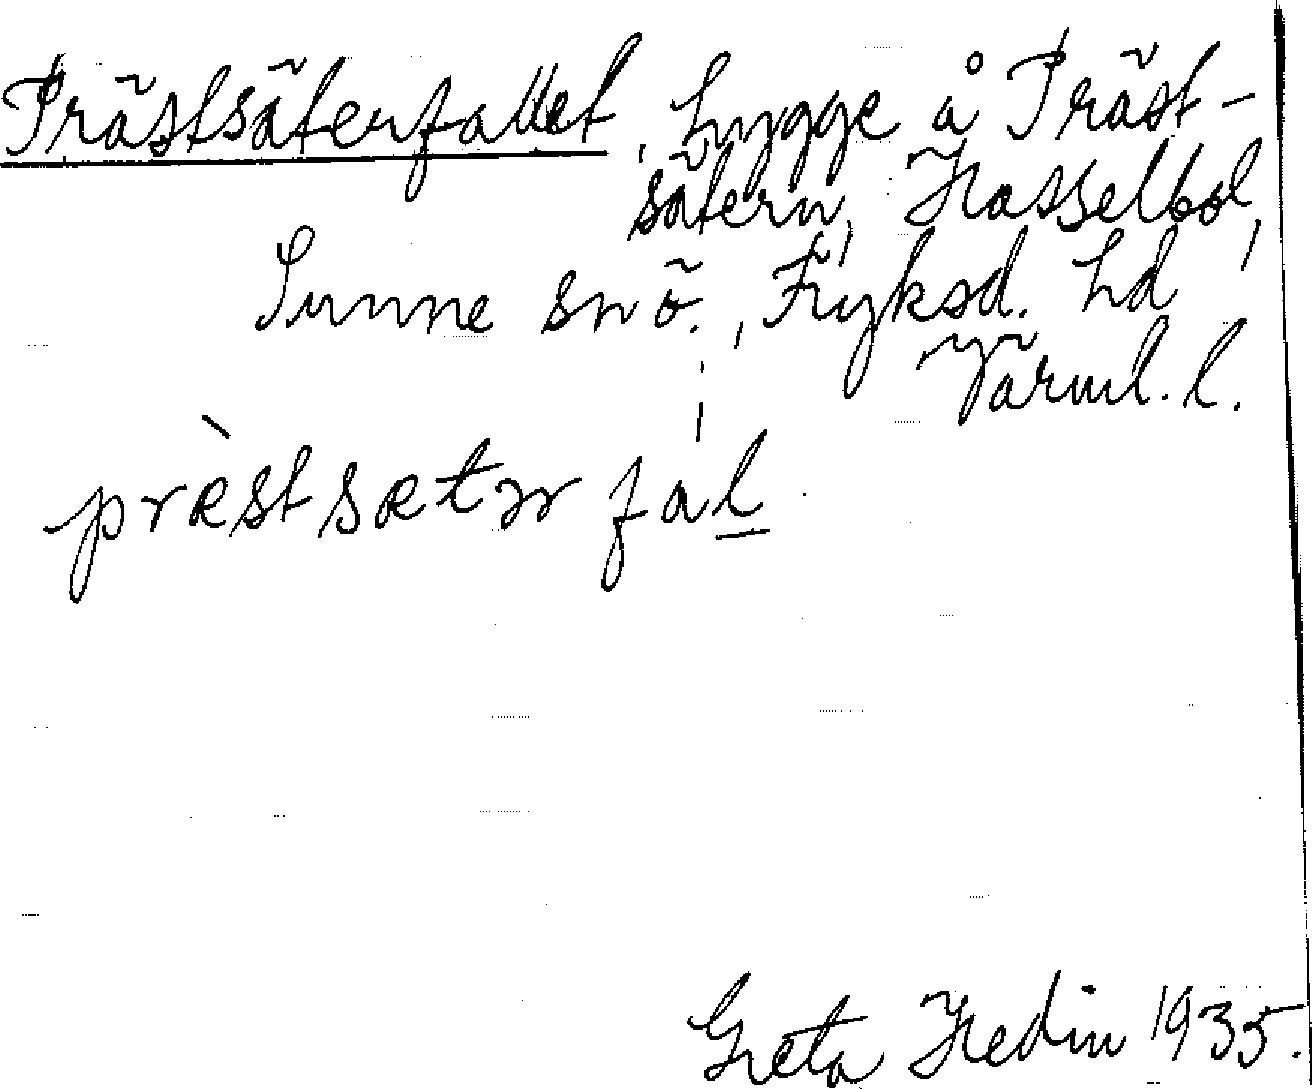 Prästsäterfallet, hygge å Präst-
sätern, Hasselbol,
Sunne snö., Fryksd. hd
Värml. l.
præ̀stsætər fal
Greta Hedin 1935.